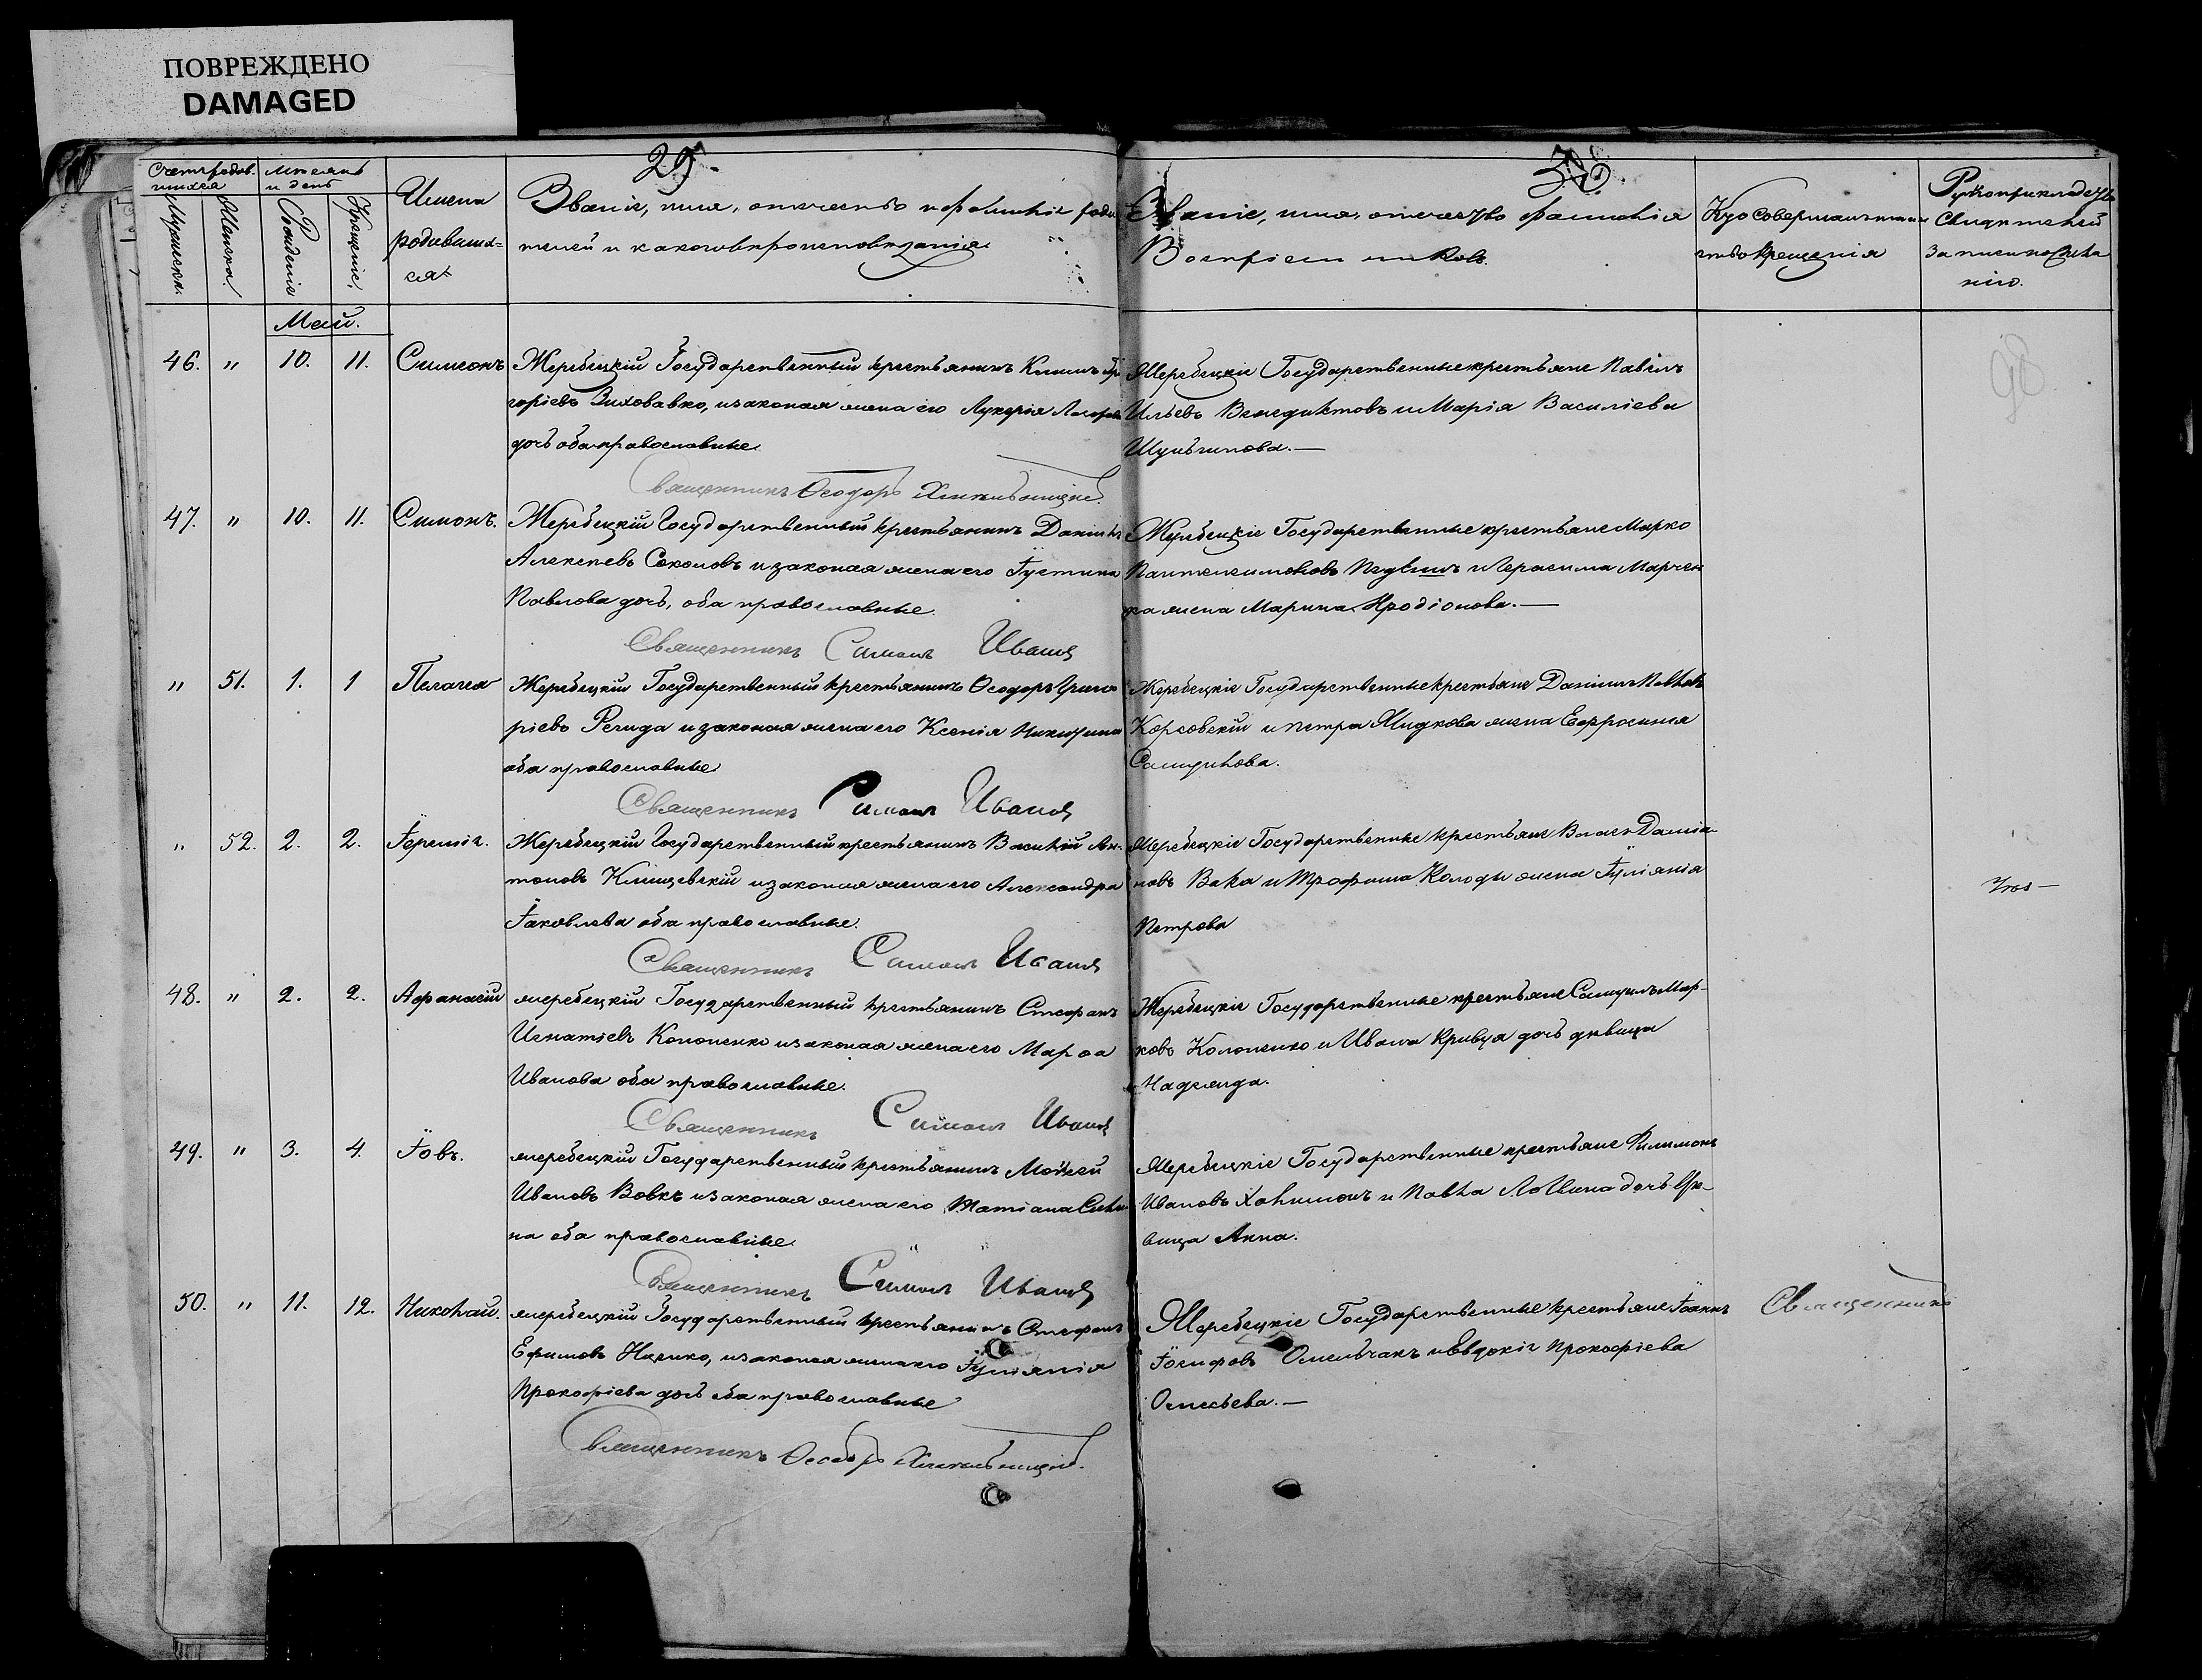 ПОВРЕЖДЕНО
DAMAGED
29.
Счетъ родив-
шихся
Мѣсяцъ
и день
Мужеска.
Женска.
Рожденіе
Крещеніе.
Имена
родивших=
ся
Званіе, имя, отчество и фамилія роди
телей и какого вѣроисповѣданія
Званіе, имя, отчество фамилія
Воспріемниковъ.
Кто совершалъ таин
ство крещенія
Рукоприкладство
свидѣтелей
записи по жела
нію.
Май.
98
46. " 10. 11. Симеонъ
Жеребецкій Государственный крестьянинъ Климъ Гри
горіевъ Виховавко, и законная жена его Лукерія
дочь оба православные
Священникъ Ѳеодоръ Хмельницкій.
Жеребецкіе Государственные крестьяне Павелъ
Ильевъ Венедиктовъ и Марія Василіева
Шульгинова.—
47. " 10. 11. Симонъ.
Жеребецкій Государственный крестьянинъ Даніилъ
Алексѣевъ Соколовъ и законная жена его Іустина
Павлова дочь, оба православные.
Священникъ Симеонъ Ивановъ
Жеребецкіе Государственные крестьяне Марко
Пантелимоновъ и Герасима Марчен
ка жена Марина Иродіонова.—
" 51. 1. 1 Пелагея
Жеребецкій Государственный крестьянинъ Ѳеодоръ Григо
ріевъ Регида и законная жена его Ксенія Никитина
оба православные
Священникъ Симеонъ Ивановъ
Жеребецкіе Государственные крестьяне Даніилъ Павловъ
Корсовскій и Петра Жидкова жена Евфросинія
Самуилова.
" 52. 2. 2. Іеренія.
Жеребецкій Государственный крестьянинъ Василій Ан-
тоновъ Клищевскій и законная жена его Александра
Іаковлева оба православные.
Священникъ Симеонъ Ивановъ
Жеребецкіе Государственные крестьяне Власъ Даміа-
новъ Вака и Трофима Колоды жена Іуліанія
Петрова
48. " 2. 2. Афанасій
жеребецкій Государственный крестьянинъ Стефанъ
Игнатіевъ Кононенко и законная жена его Марфа
Иванова оба православные.
Священникъ Симеонъ Ивановъ
Жеребецкіе Государственные крестьяне Самуилъ Мар-
ковъ Кононенко и Ивана Кривца дочь дѣвица
Надежда.
49. " 3. 4. Іовъ.
жеребецкій Государственный крестьянинъ Моѵсей
Ивановъ Вовкъ и законная жена его Татіана Сави
на оба православные
Священникъ Симеонъ Ивановъ
Жеребецкіе Государственные крестьяне Филимонъ
Ивановъ и Павла Логвина дочь дѣ-
вица Анна.
50. " 11. 12. Николай.
жеребецкій Государственный крестьянинъ Стефанъ
Ефимовъ Ищенко, и законная жена его Іуліанія
Прокофіева дочь оба православные
Священникъ Ѳеодоръ Хмельницкій.
Жеребецкіе Государственные крестьяне Іоаннъ
Іосифовъ Омельчакъ и Евдокія Прокофіева
Омельева.—
Священникъ